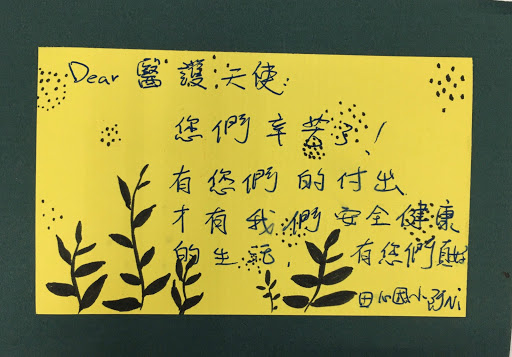 Dear 醫護天使:
您們辛苦了!
有您們的付出
才有我們安全健康
的生活, 有您們真好
田心國小